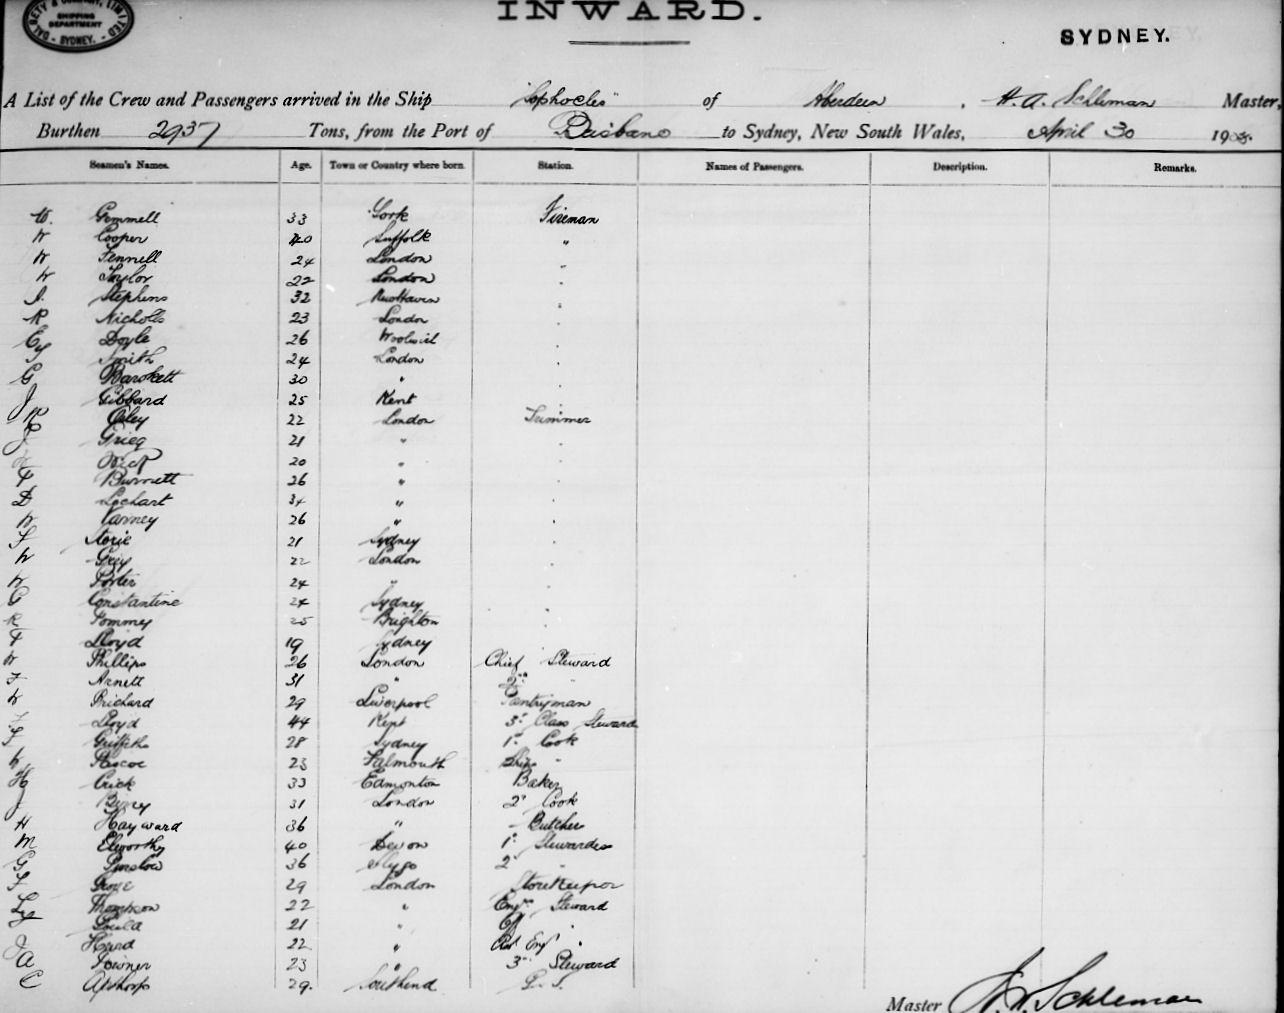 DALGETY & COMPANY, LIMITED
SHIPPING DEPARTMENT
SYDNEY.
INWARD.
SYDNEY.
A List of the Crew and Passengers arrived in the Ship "Sophocles" of Aberdeen, A. A. Schleman Master,
Burthen 2937 Tons, from the Port of Brisbane to Sydney, New South Wales, April 30 190
Seamen's Names. Age. Town or Country where born. Station. Names of Passengers. Description. Remarks.
W. Gemmell 33 York Fireman
W Cooper 40 Suffolk "
W Fennell 24 London "
W Taylor 22 London "
A. Stephens 32 NewHaven "
R Nicholls 23 London "
Doyle 26 Woolwich "
Smith 24 London "
G Barokett 30 " "
J Gibbard 25 Kent "
R Oxley 22 London Trimmer
J Grieg 21 " "
20 " "
F Burnett 26 " "
D Lochart 34 " "
W Varney 26 " "
F Storie 21 Sydney "
W Grey 22 London "
W Porter 24 " "
C Constantine 24 Sydney "
R Pommey 25 Brighton "
F Lloyd 19 Sydney "
W Phillips 26 London Chief Steward
F Arnett 31 " 2nd "
W Prichard 29 Liverpool Pantryman
Lloyd 44 Kent 3r Class Steward
F Griffiths 28 Sydney 1st Cook
W Roscoe 23 Falmouth Ships "
H Crick 33 Edmonton Baker
J Berry 31 London 2d Cook
H Hayward 36 " Butcher
M Elworthy 40 Devon 1st Stewardess
G Purslow 36 Slygo 2 "
F Grove 29 London Storekeeper
Thompson 22 " Engrs Steward
Gould 21 "
J Hurd 22 " Ast Engr "
A Towner 23 " 3rd Steward
C Apthorp 29. Southend G. S.
Master A. A. Schleman